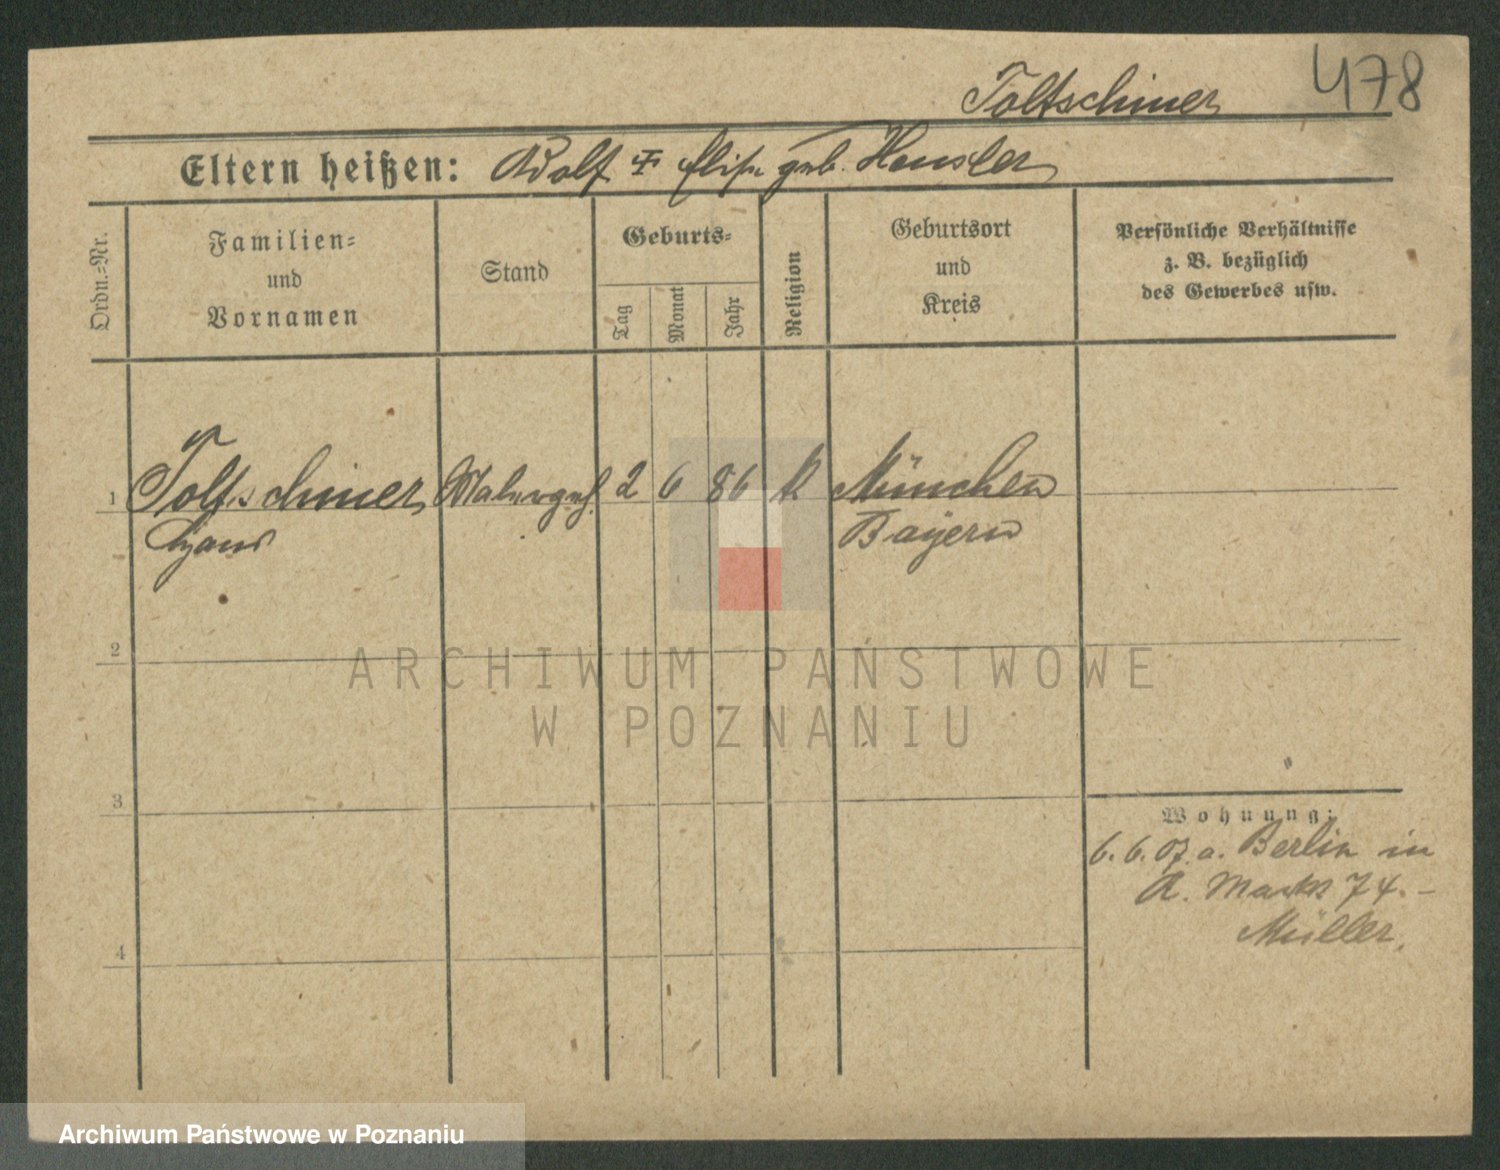 Toltschiner 478
Eltern heißen: Adolf u. Elise geb. Hensler
Ordn.=Nr.
Familien=
und
Vornamen
Stand
Geburts=
Tag
Monat
Jahr
Religion
Geburtsort
und
Kreis
Persönliche Verhältnisse
z. B. bezüglich
des Gewerbes usw.
1 Toltschiner Malergeh. 2 6 86 K München
Hans Bayern
2
3
4
Wohnung:
6. 6. 07. a. Berlin in
A. Markt 74. –
Müller.
ARCHIWUM PAŃSTWOWE
W POZNANIU
Archiwum Państwowe w Poznaniu